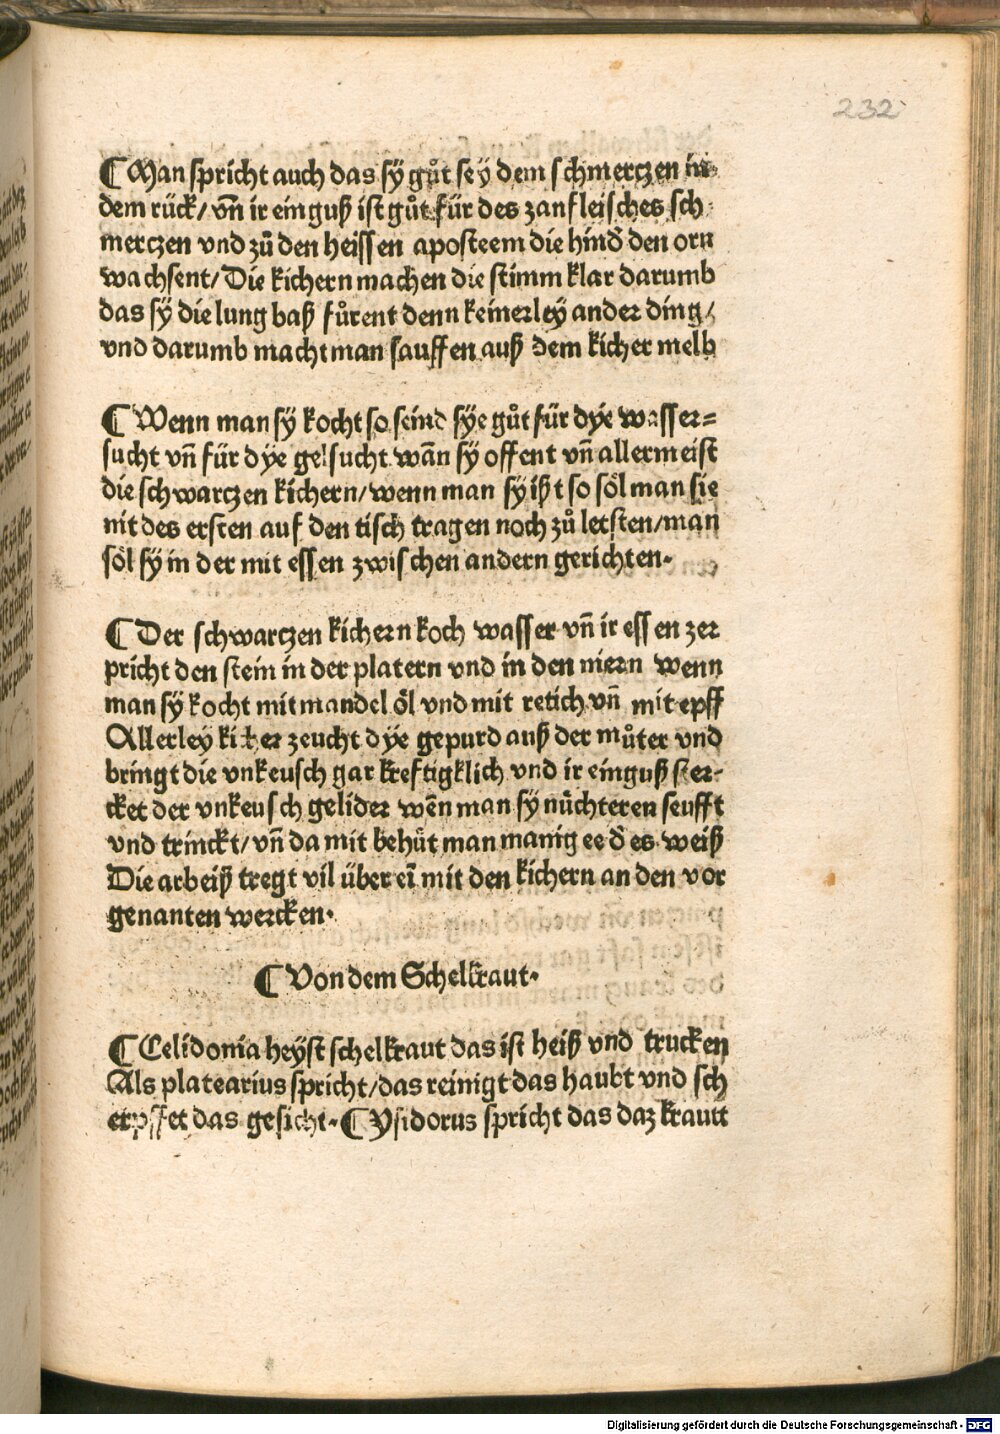 232
¶ Man spricht auch das sÿ gůt seÿ dem schmerczen in
dem rück/ vn̄ ir einguß ist gůt für des zanfleisches sch
merczen vnd zů den heissen aposteem die hind̕ den orn
wachsent/ Die kichern machen die stimm klar darumb
das sÿ die lung baß fůrent denn keinerleÿ ander ding/
vnd darumb macht man sauffen auß dem kicher melb
¶ Wenn man sÿ kocht so seind sÿe gůt für dÿe wasser=
sucht vn̄ für dÿe gelsucht wān sÿ offent vn̄ allermeist
die schwarczen kichern/ wenn man sÿ ißt so söl man sie
nit des ersten auf den tisch tragen noch zů letsten/ man
söl sÿ in der mit essen zwischen andern gerichten.
¶ Der schwarczen kichern koch wasser vn̄ ir essen zer
pricht den stein in der platern vnd in den niern wenn
man sÿ kocht mit mandel öl vnd mit retich vn̄ mit epff
Allerleÿ kicher zeucht dÿe gepurd auß der můter vnd
bringt die vnkeusch gar kreftigklich vnd ir einguß ster-
cket der vnkeusch gelider wēn man sÿ nüchteren seufft
vnd trinckt/ vn̄ da mit behüt man manig ee d̕ es weiß
Die arbeiß tregt vil über eī mit den kichern an den vor
genanten wercken.
¶ Von dem Schelkraut.
¶ Celidonia heÿst schelkraut das ist heiß vnd trucken
Als platearius spricht/ das reinigt das haubt vnd sch
erpffet das gesicht. ¶ Ysidorus spricht das daz krautt
Digitalisierung gefördert durch die Deutsche Forschungsgemeinschaft - DFG